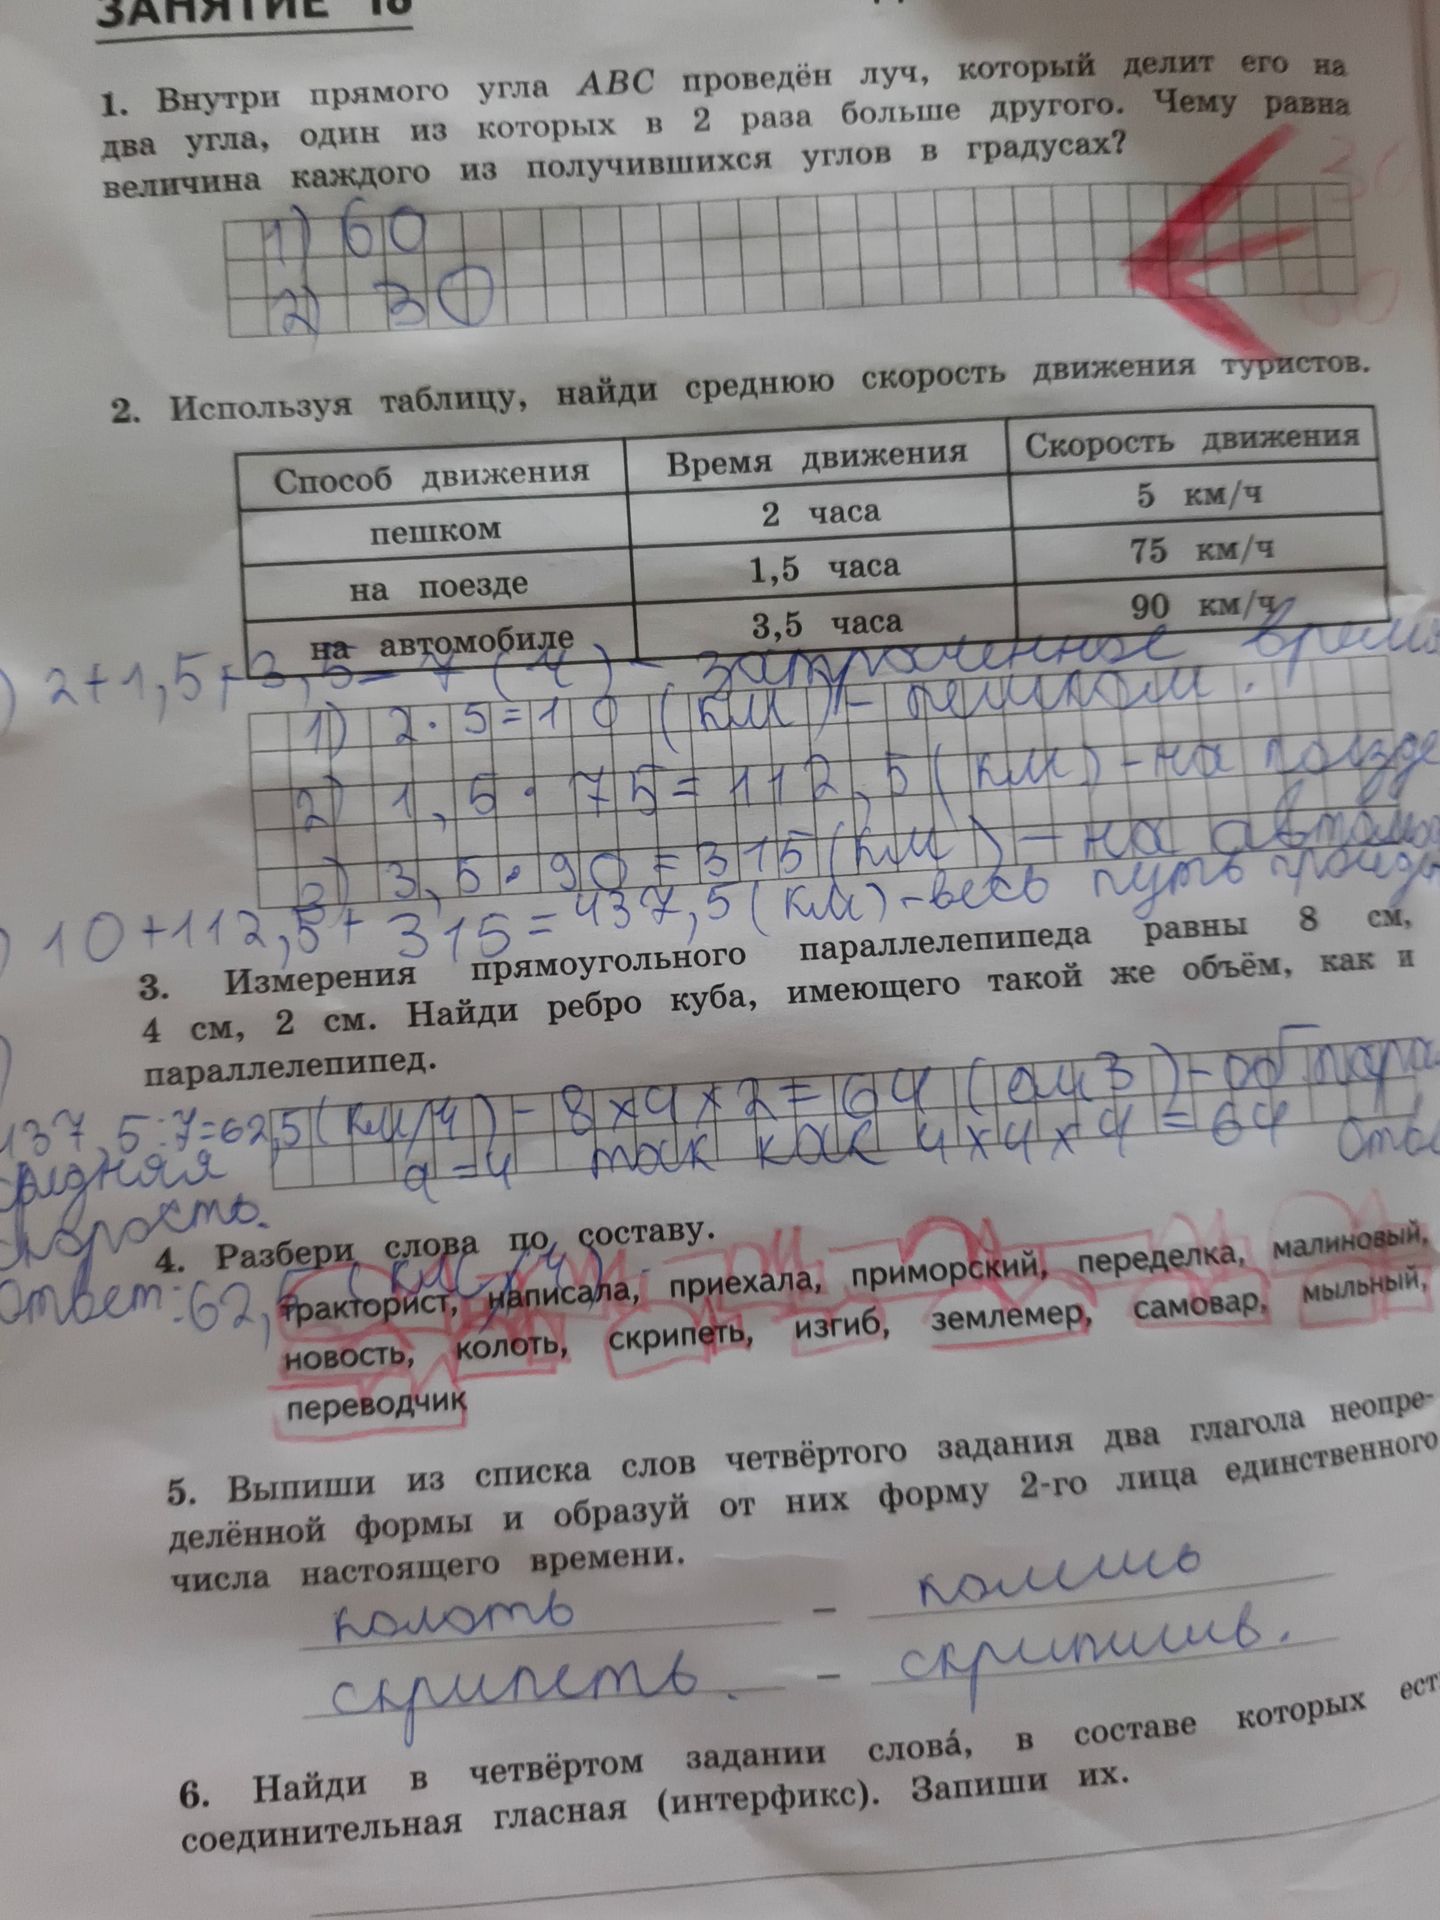 ЗАНЯТИЕ 18
1. Внутри прямого угла ABC проведён луч, который делит его на
два угла, один из которых в 2 раза больше другого. Чему равна
величина каждого из получившихся углов в градусах?
1) 60
2) 30
2. Используя таблицу, найди среднюю скорость движения туристов.
Способ движения Время движения Скорость движения
пешком 2 часа 5 км/ч
на поезде 1,5 часа 75 км/ч
на автомобиле 3,5 часа 90 км/ч
) 2+1,5+3,5=7(ч) - затраченное время
1) 2·5=10 (км) - пешком.
2) 1,5·75=112,5(км) - на поезде
3) 3,5·90=315(км) - на автомоб
) 10+112,5+315=437,5(км) - весь путь пройд
3. Измерения прямоугольного параллелепипеда равны 8 см,
4 см, 2 см. Найди ребро куба, имеющего такой же объём, как и
параллелепипед.
8×4×2=64 (см3) - об. пара
a=4 так как 4×4×4=64 Отв
437,5:7=62,5(км/ч) -
средняя
скорость.
Ответ: 62,5 (км/ч).
4. Разбери слова по составу.
тракторист, написала, приехала, приморский, переделка, малиновый,
новость, колоть, скрипеть, изгиб, землемер, самовар, мыльный,
переводчик
5. Выпиши из списка слов четвёртого задания два глагола неопре-
делённой формы и образуй от них форму 2-го лица единственного
числа настоящего времени.
колоть – колишь
скрипеть. – скрипишь.
6. Найди в четвёртом задании слова́, в составе которых ест
соединительная гласная (интерфикс). Запиши их.